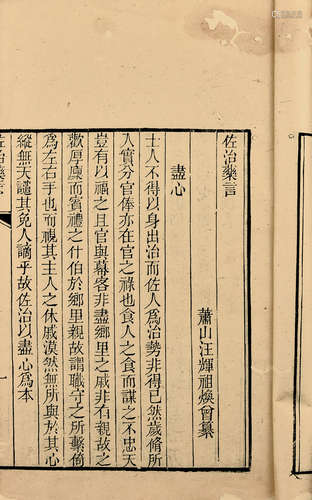 佐治藥言
蕭山汪輝祖煥曾纂
盡心
士人不得以身出治而佐人爲治勢非得已然歲脩所
入實分官俸亦在官之祿也食人之食而謀之不忠天
豈有以福之且官與幕客非盡鄉里之戚非有親故之
歡厚廩而賓禮之什伯於鄉里親故謂職守之所繫倚
爲左右手也而視其主人之休戚漠然無所與於其心
縱無天譴其免人謫乎故佐治以盡心爲本
佐治藥言
一